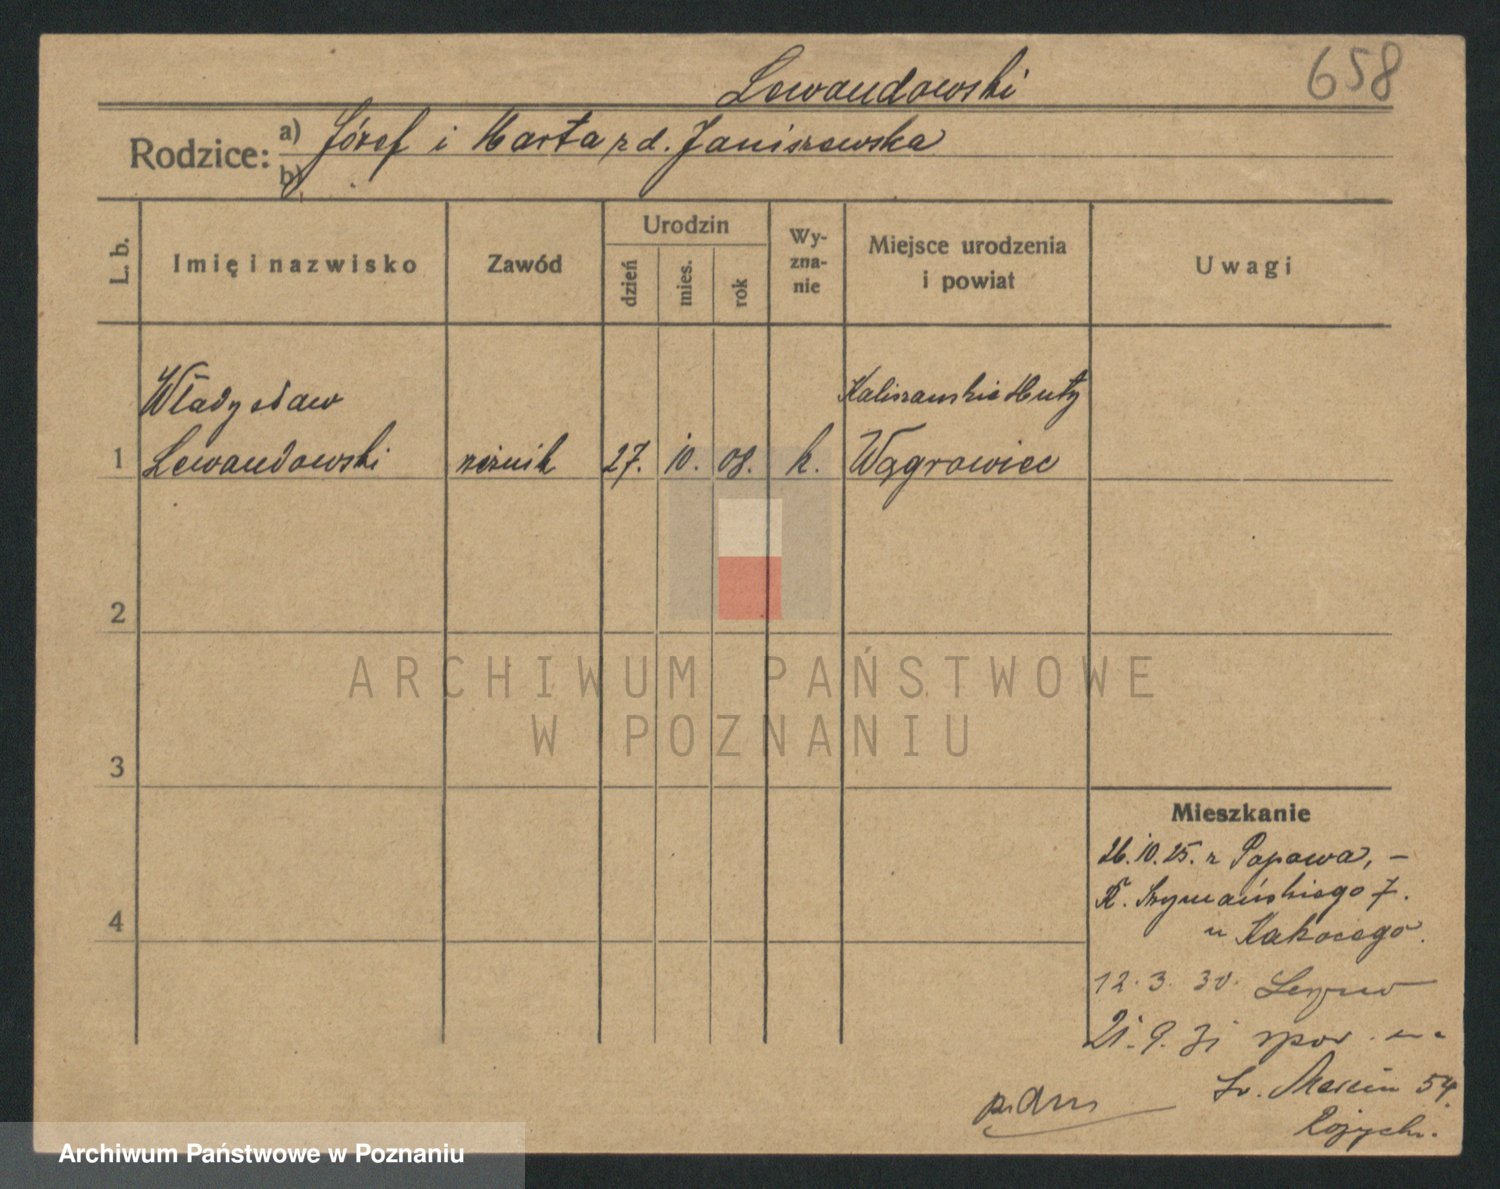 658
Lewandowski
Rodzice: a) Józef i Marta z d. Janiszewska
b)
L. b.
Imię i nazwisko
Zawód
Urodzin
dzień
mies.
rok
Wy-
zna-
nie
Miejsce urodzenia
i powiat
Uwagi
Władysław
Kaliszańskie Huty
1 Lewandowski rzeźnik 27. 10. 08. k. Wągrowiec
2
ARCHIWUM PAŃSTWOWE
W POZNANIU
3
Mieszkanie
26.10.25. z Popowa, –
K. Szymańskiego 7.
4
u Kakocego.
12.3.30.
21.9.31 na
św. Marcin 54.
Archiwum Państwowe w Poznaniu